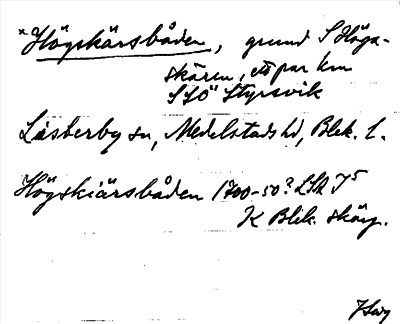 ×Högskärsbåden, grund S Höga-
skären, ett par km
SSO Styrsvik
Listerby sn, Medelstads hd, Blek. l.
Högskiärsbåden 1700-50? LSA J5
K Blek. skärg.